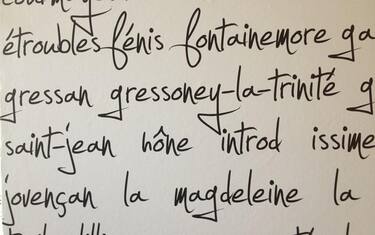 étroubles fénis fontainemore ga
gressan gressoney-la-trinité g
saint-jean hône introd issime
jovençan la magdeleine la